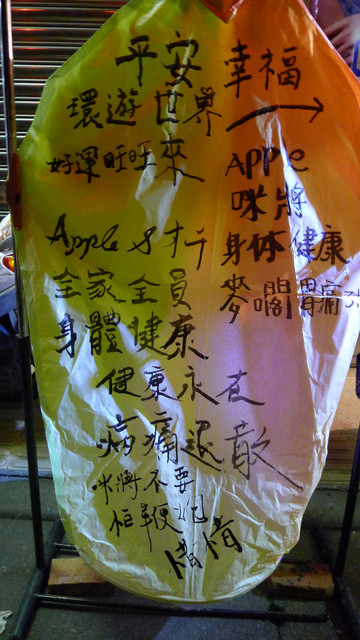 平安 幸福
環遊世界 →
好運旺旺來 APPle
咪將
Apple 身体健康
全家全員 麥 胃痛
身體健康
健康永在
病痛退散
咪將不要
情情